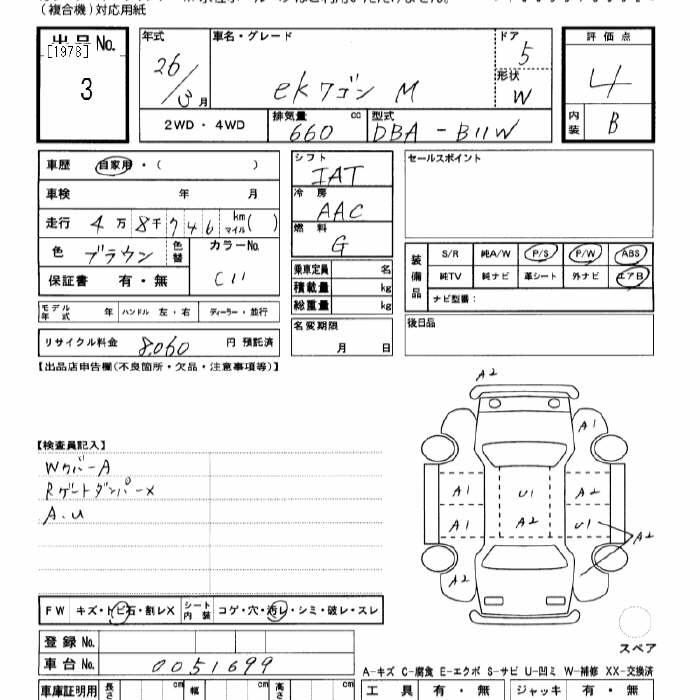 (複合機)対応用紙
出品No.
[1978]
3
年式
26/3月
車名・グレード
ekワゴン M
ドア
5
形状
W
評価点
4
内装
B
2WD・4WD
排気量
660 cc
型式
DBA-B11W
車歴 自家用・( )
車検 年 月
走行 4万8千746 km マイル( )
色 ブラウン
色替
カラーNo.
C11
保証書 有・無
モデル年式 年
ハンドル 左・右
ディーラー・並行
リサイクル料金 8,060 円 預託済
シフト
IAT
冷房
AAC
燃料
G
乗車定員 名
積載量 kg
総重量 kg
名変期限
月 日
セールスポイント
装備品
S/R 純A/W P/S P/W ABS
純TV 純ナビ 革シート 外ナビ エアB
ナビ型番:
後日品
【出品店申告欄(不良箇所・欠品・注意事項等)】
【検査員記入】
Wカバー A
Rゲートダンパー ×
A.U
A2
A1
A1 U1 A2
A1 A2 U1
A2
A2
スペア
FW キズ・トビ石・割レX
シート内装 コゲ・穴・汚レ・シミ・破レ・スレ
登録 No.
車台 No. 0051699
車庫証明用 長さ cm 幅 cm 高さ cm
A-キズ C-腐食 E-エクボ S-サビ U-凹ミ W-補修 XX-交換済
工具 有・無 ジャッキ 有・無